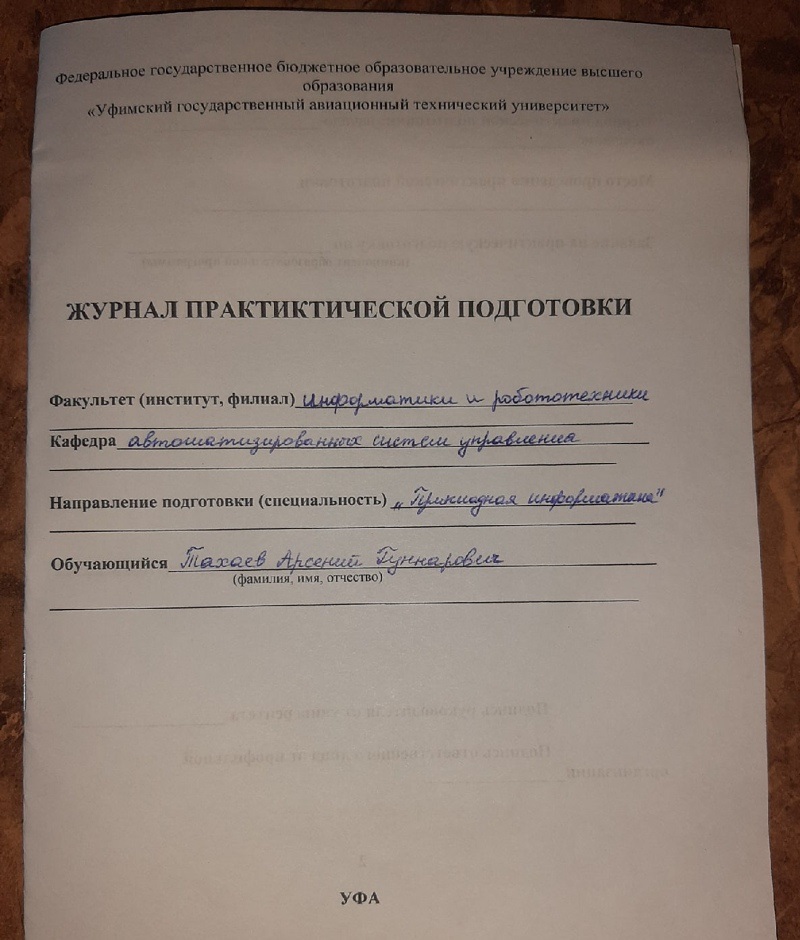 Федеральное государственное бюджетное образовательное учреждение высшего
образования
«Уфимский государственный авиационный технический университет»
ЖУРНАЛ ПРАКТИКТИЧЕСКОЙ ПОДГОТОВКИ
Факультет (институт, филиал) информатики и робототехники
Кафедра автоматизированных систем управления
Направление подготовки (специальность) „Прикладная информатика"
Обучающийся Тахаев Арсений Гуннарович
(фамилия, имя, отчество)
УФА